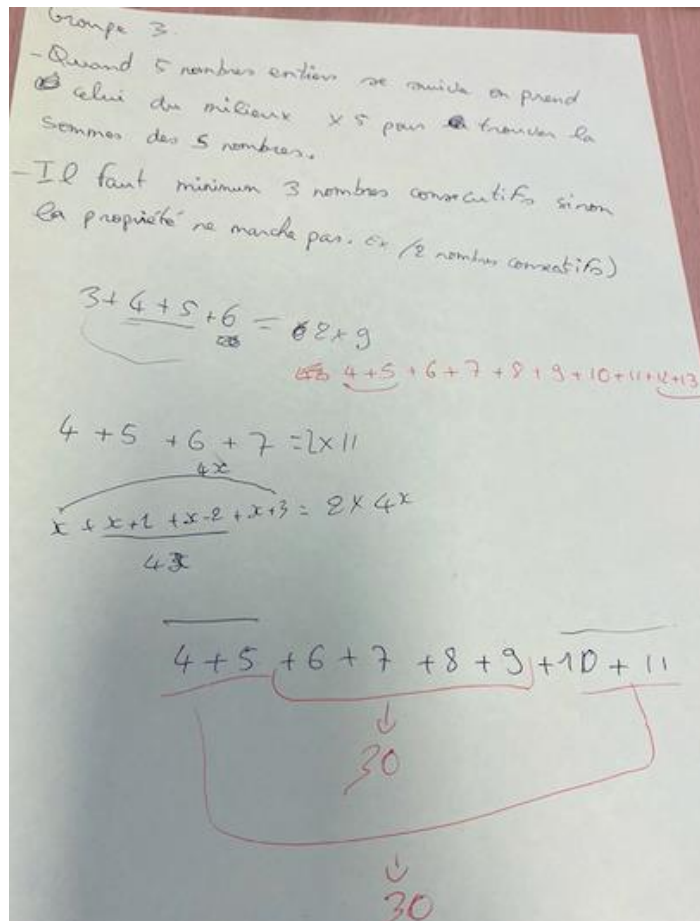 Groupe 3.
- Quand 5 nombres entiers se suive on prend
celui du milieux x 5 pour trouver la
sommes des 5 nombres.
- Il faut minimum 3 nombres consecutifs sinon
la propriété ne marche pas. Ex (2 nombres consecutifs)
3 + 4 + 5 + 6 = 2 x 9
4 + 5 + 6 + 7 + 8 + 9 + 10 + 11 + 12 + 13
4 + 5 + 6 + 7 = 2 x 11
4x
x + x+1 + x-2 + x+3 = 2 x 4x
4x
4 + 5 + 6 + 7 + 8 + 9 + 10 + 11
30
30